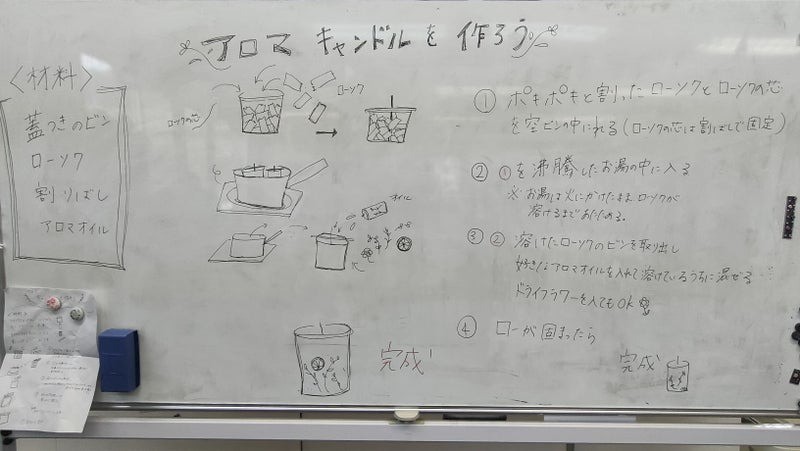 アロマ キャンドルを作ろう
〈材料〉
蓋つきのビン
ローソク
割りばし
アロマオイル
ローソク
ローソクの芯
オイル
① ポキポキと割ったローソクとローソクの芯
を空ビンの中に入れる(ローソクの芯は割ばしで固定)
② ①を沸騰したお湯の中に入る
※お湯は火にかけたまま ローソクが
溶けるまであたためる。
③ ② 溶けたローソクのビンを取出し
好きなアロマオイルを入れて溶けているうちに混ぜる…
ドライフラワーを入てもOK
④ ローが固まったら
完成!
完成